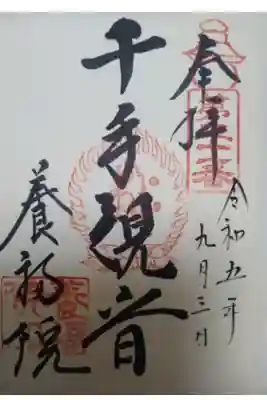 奉拝
令和五年
九月三日
千手観音
養福院